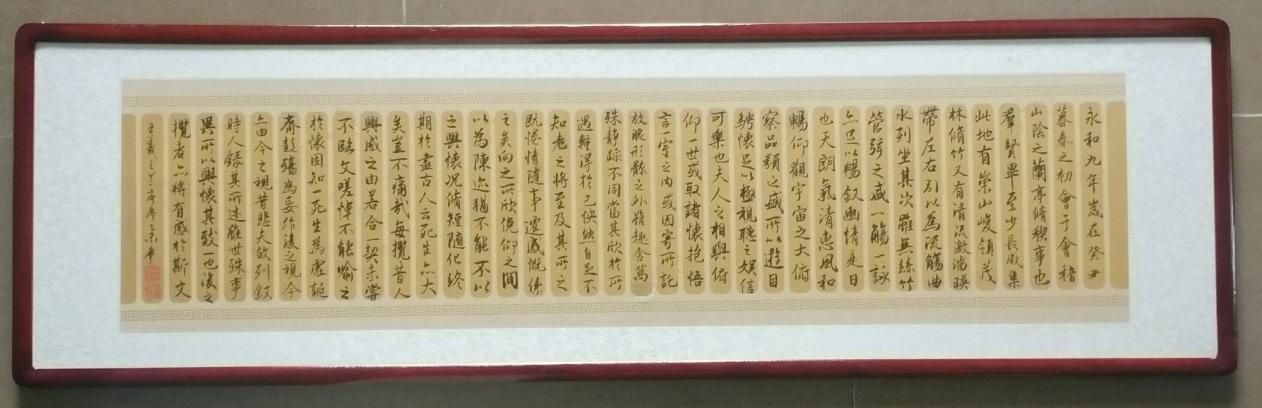 永和九年歲在癸丑
暮春之初會于會稽
山陰之蘭亭脩稧事也
羣賢畢至少長咸集
此地有崇山峻領茂
林脩竹又有清流激湍暎
帶左右引以為流觴曲
水列坐其次雖無絲竹
管弦之盛一觴一詠
亦足以暢叙幽情是日
也天朗氣清惠風和
暢仰觀宇宙之大俯
察品類之盛所以遊目
騁懷足以極視聽之娛信
可樂也夫人之相與俯
仰一世或取諸懷抱悟
言一室之內或因寄所託
放浪形骸之外雖趣舍萬
殊静躁不同當其欣於所
遇輒得於己快然自足不
知老之將至及其所之
既惓情隨事遷感慨係
之矣向之所欣俛仰之間
以為陳迹猶不能不以
之興懷況脩短隨化終
期於盡古人云死生亦大
矣豈不痛哉每攬昔人
興感之由若合一契未嘗
不臨文嗟悼不能喻之
於懷固知一死生為虛誕
齊彭殤為妄作後之視今
亦由今之視昔悲夫故列叙
時人録其所述雖世殊事
異所以興懷其致一也後之
攬者亦將有感於斯文
王羲之蘭亭序